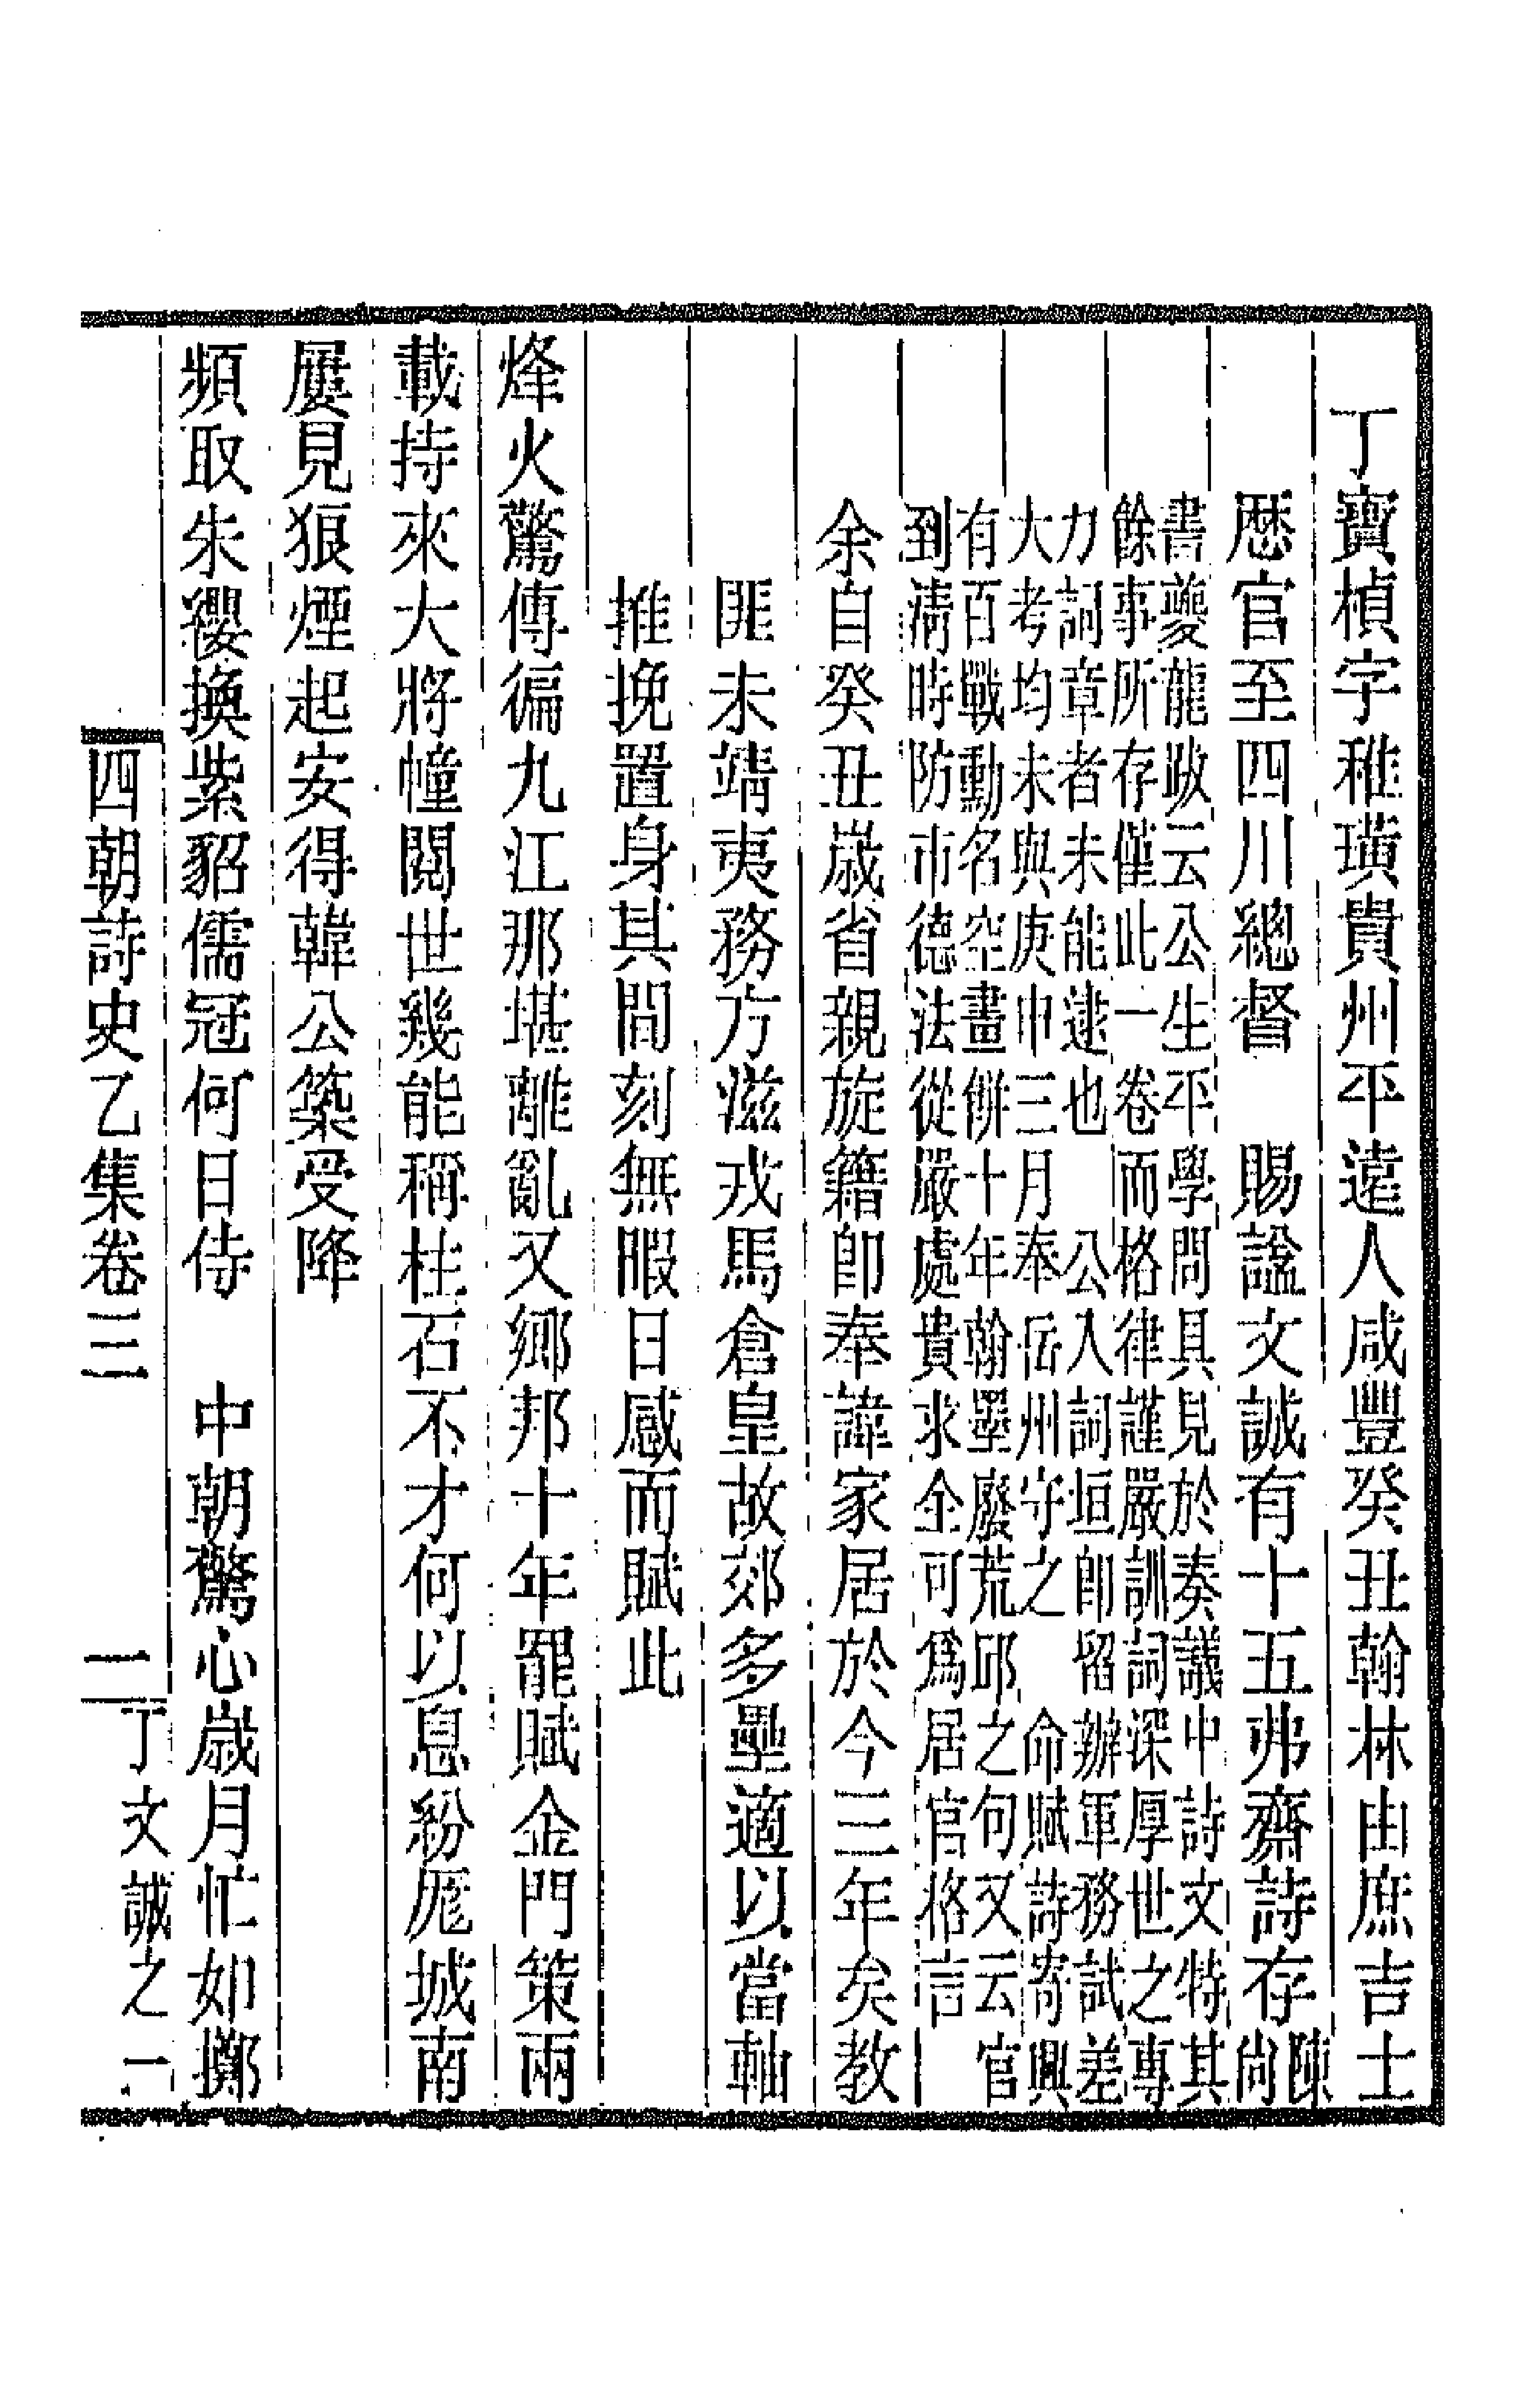 丁寶楨字稚璜貴州平遠人咸豐癸丑翰林由庶吉士
厯官至四川總督　賜諡文誠有十五弗齋詩存陳尙
書夔龍跋云公生平學問具見於奏議中詩文特其
餘事所存僅此一卷而格律謹嚴訓詞深厚世之專
力詞章者未能逮也　公入詞垣卽留辦軍務試差
大考均未與庚申三月奉岳州守之　命賦詩寄興
有百戰勳名空畫餅十年翰墨廢荒邱之句又云官
到淸時防市德法從嚴處貴求全可爲居官格言
余自癸丑歲省親旋籍卽奉諱家居於今三年矣教
匪未靖夷務方滋戎馬倉皇故郊多壘適以當軸
推挽置身其間刻無暇日感而賦此
烽火驚傳徧九江那堪離亂又鄉邦十年罷賦金門策兩
載持來大將幢閱世幾能稱柱石不才何以息紛厖城南
屢見狼煙起安得韓公築受降
頻取朱纓換紫貂儒冠何日侍　中朝驚心歲月忙如擲
四朝詩史乙集卷三　一　丁文誠之一